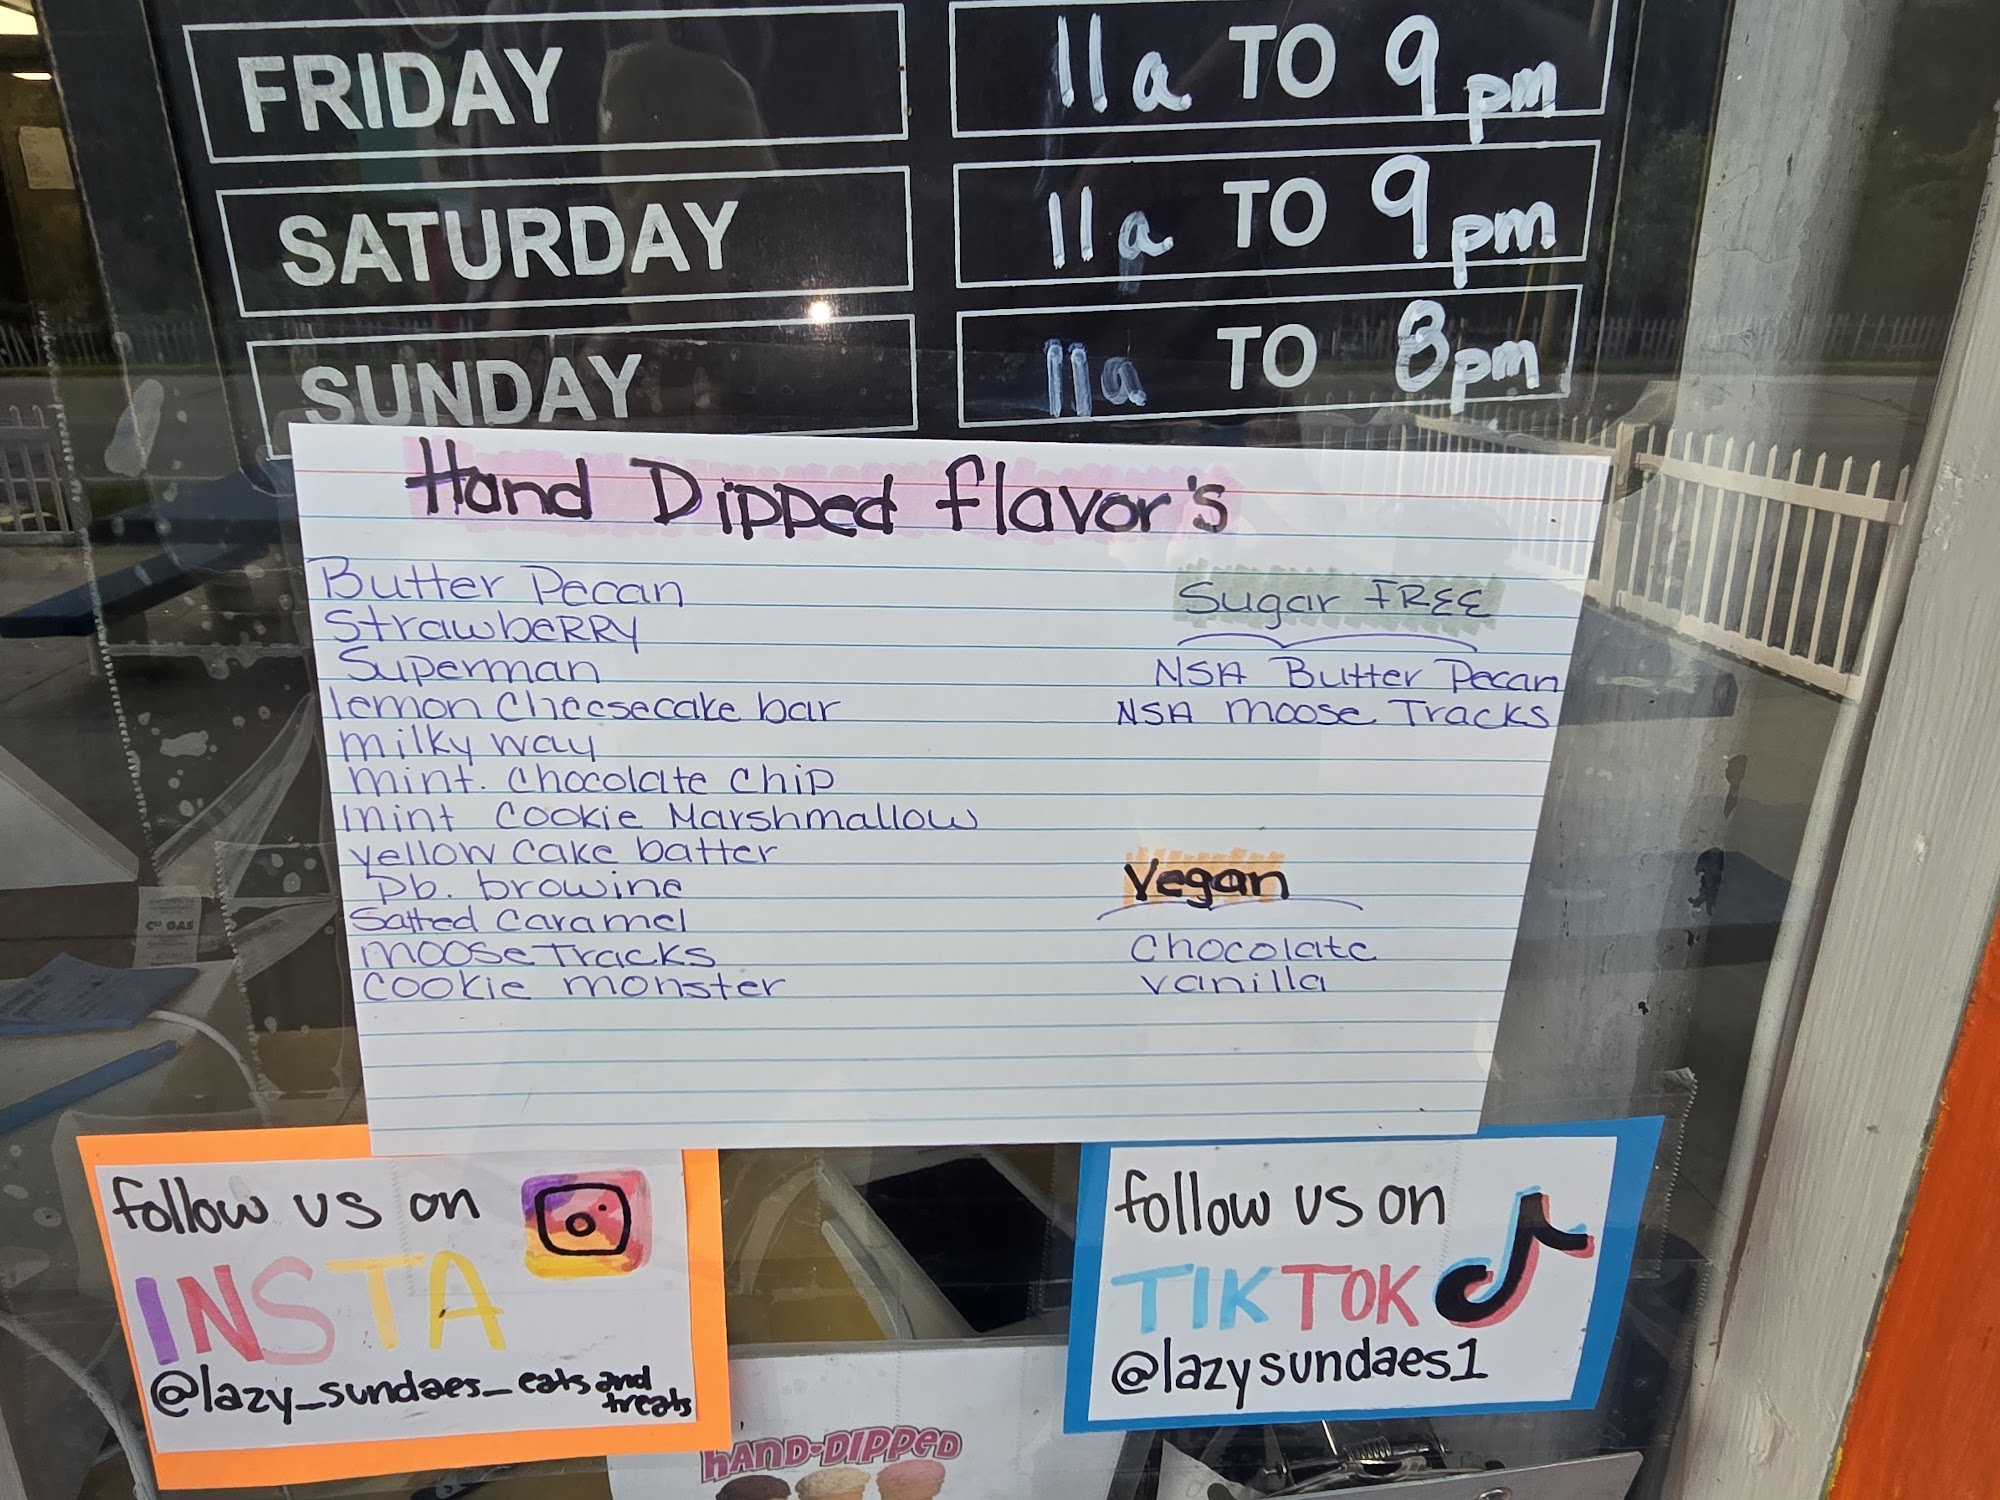 FRIDAY 11a TO 9pm
SATURDAY 11a TO 9pm
SUNDAY 11a TO 8pm
Hand Dipped flavor's
Butter Pecan
StrawbeRRY
Superman
lemon Cheesecake bar
milky way
mint. Chocolate Chip
mint Cookie Marshmallow
yellow cake batter
Pb. browine
Salted Caramel
moose Tracks
Cookie monster
Sugar FREE
NSA Butter Pecan
NSA moose Tracks
Vegan
Chocolate
vanilla
follow us on
INSTA
@lazy_sundaes_eats and treats
follow us on
TIKTOK
@lazysundaes1
HAND-DIPPED